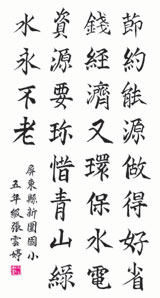 節約能源做得好省
錢經濟又環保水電
資源要珍惜青山綠
水永不老
屏東縣新圍國小
五年級張雲婷